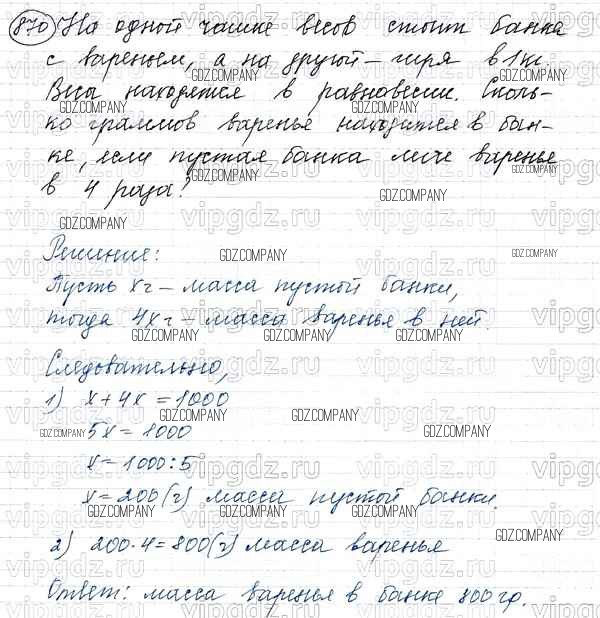 870 На одной чашке весов стоит банка
с вареньем, а на другой – гиря в 1 кг.
Весы находятся в равновесии. Сколь-
ко граммов варенья находится в бан-
ке, если пустая банка легче варенья
в 4 раза?
Решение:
Пусть х г – масса пустой банки,
тогда 4х г – масса варенья в ней.
Следовательно,
1) х + 4х = 1000
5х = 1000
х = 1000 : 5
х = 200 (г) масса пустой банки.
2) 200 · 4 = 800 (г) масса варенья
Ответ: масса варенья в банке 800 гр.
GDZ.COMPANY
vipgdz.ru